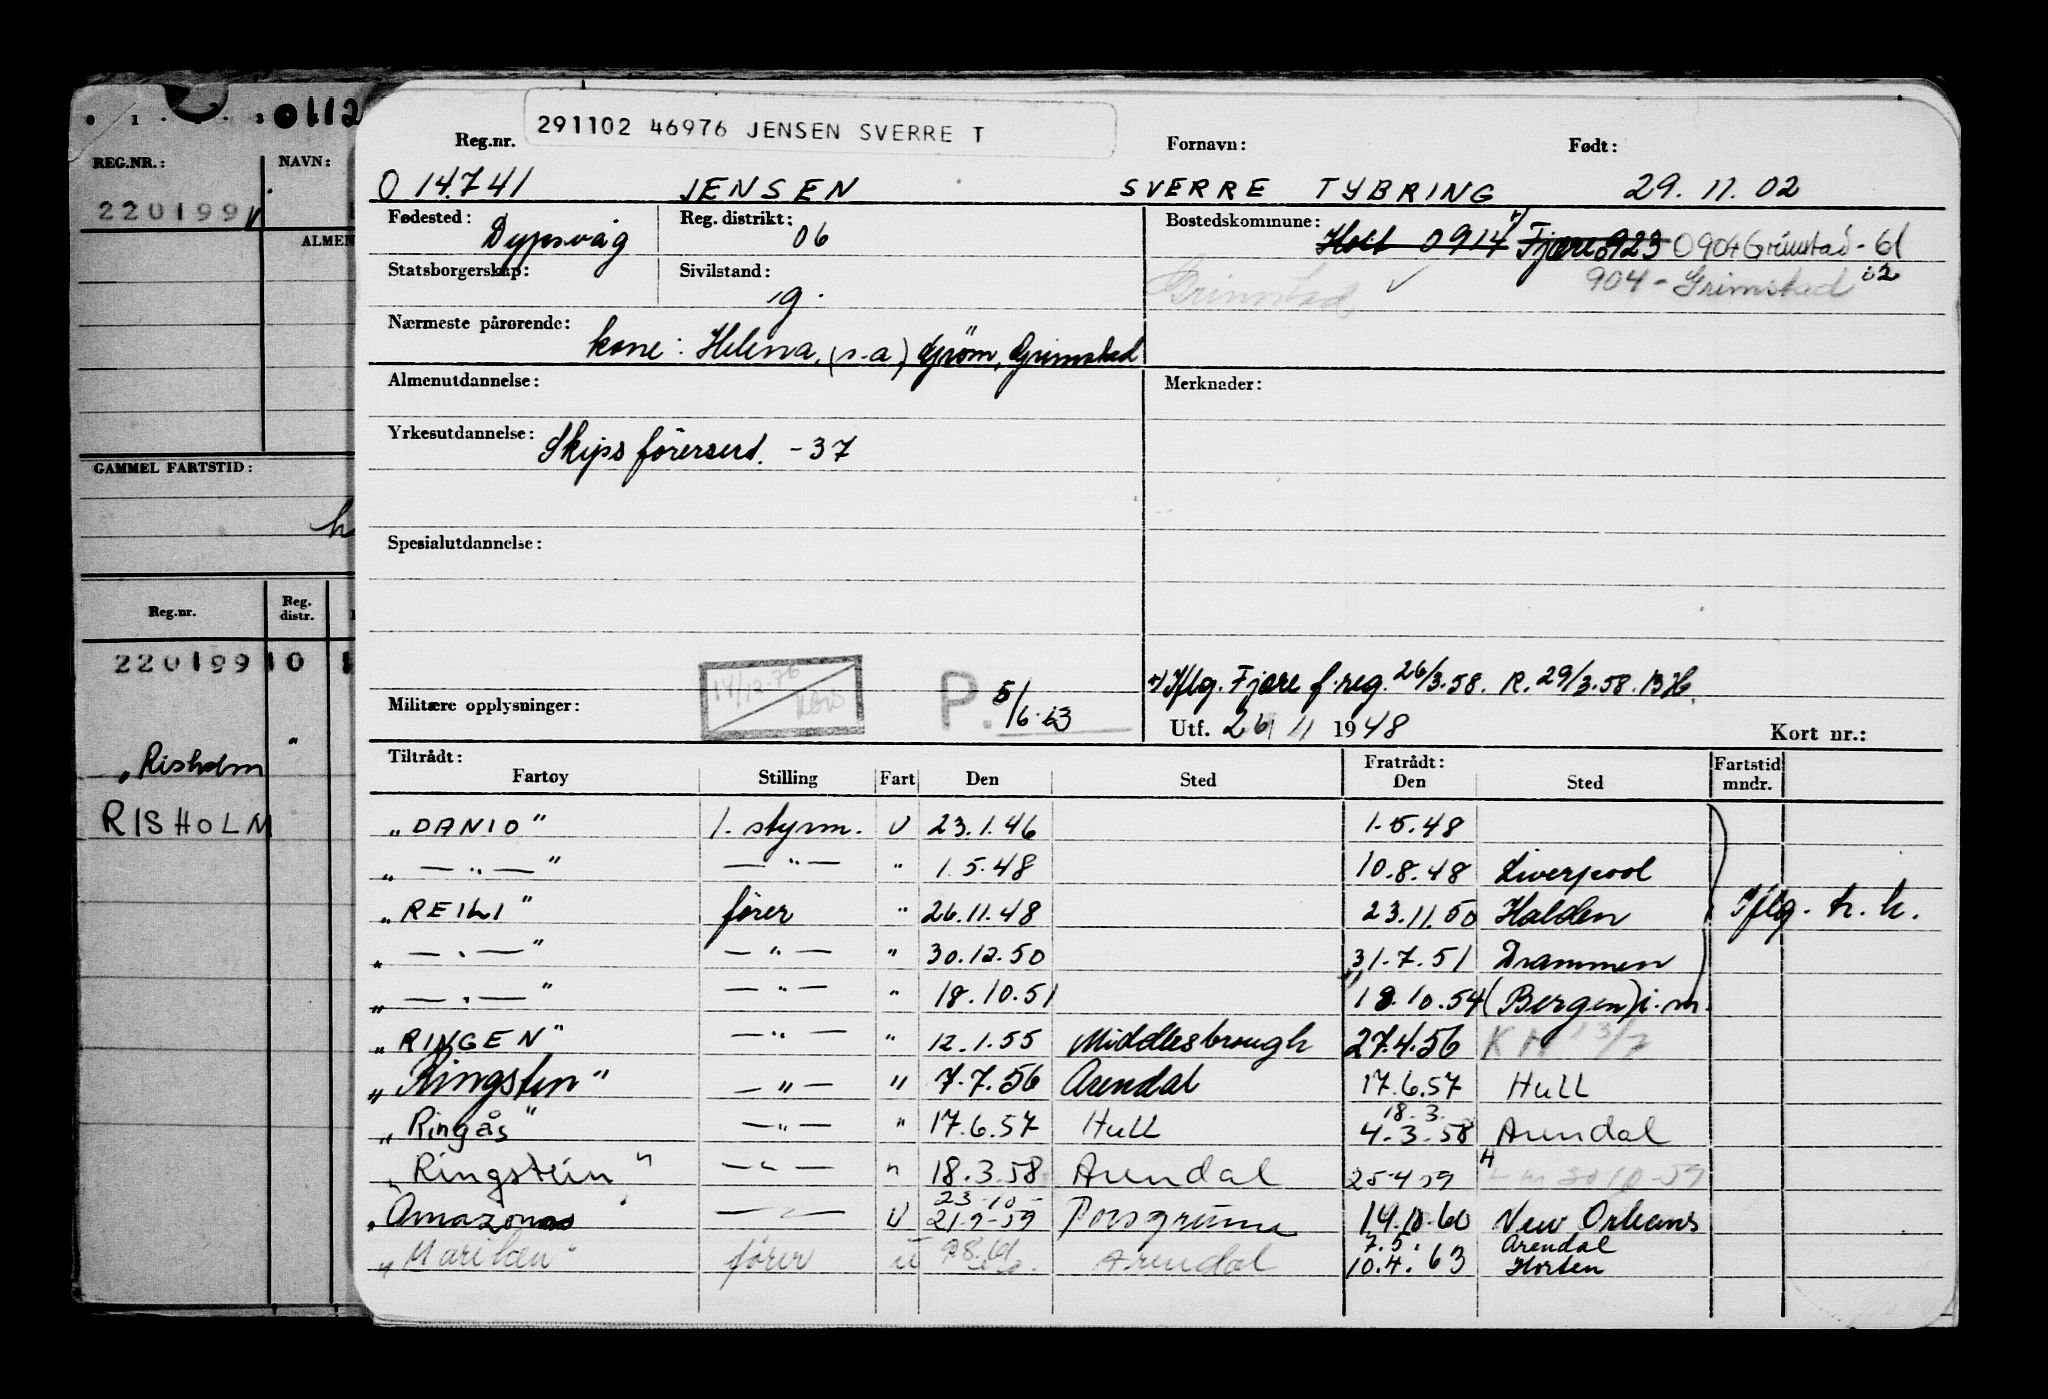 0112
REG.NR.: NAVN:
220199
GAMMEL FARTSTID:
Reg.nr. Reg. distr.
220199 10
"Risholm "
RISHOLM
291102 46976 JENSEN SVERRE T
Reg.nr. Fornavn: Født:
O 14.741 JENSEN SVERRE TYBRING 29.11.02
Fødested: Dypsvåg Reg. distrikt: 06 Bostedskommune: Holt 0914 Fjære 0923 0904 Grimstad - 61
Statsborgerskap: Sivilstand: g. Grimstad 904 - Grimstad 62
Nærmeste pårørende: kone: Helena, (s.a) Grøm, Grimstad
Almenutdannelse: Merknader:
Yrkesutdannelse: Skipsførersert. - 37
Spesialutdannelse:
14/12-76
+) Iflg. Fjære f.reg. 26/3.58. R. 29/3.58.
Militære opplysninger: P. 5/6.63 Utf. 26/11 1948 Kort nr.:
Tiltrådt: Fratrådt: Fartstid
Fartøy Stilling Fart Den Sted Den Sted mndr.
"DANIO" 1. styrm. U 23.1.46 1.5.48
" — " — " — " — " 1.5.48 10.8.48 Liverpool
"REIHI" fører " 26.11.48 23.11.50 Halden Iflg. h.k.
" — " — " — " — " 30.12.50 31.7.51 Drammen
" — " — " — " — " 18.10.51 18.10.54 (Bergen) i.m.
"RINGEN" — " — " 12.1.55 Middlesbrough 27.4.56 KM 13/7
"Ringstein" — " — " 7.7.56 Arendal 17.6.57 Hull
"Ringås" — " — " 17.6.57 Hull 18.3. 4.3.58 Arendal
"Ringstein" — " — " 18.3.58 Arendal 25.4.59
"Amazonas — " — U 23-10- 21-9-59 Porsgrunn 14.10.60 New Orleans
"Mariken" fører u Arendal 7.5. Arendal
10.4.63 Horten